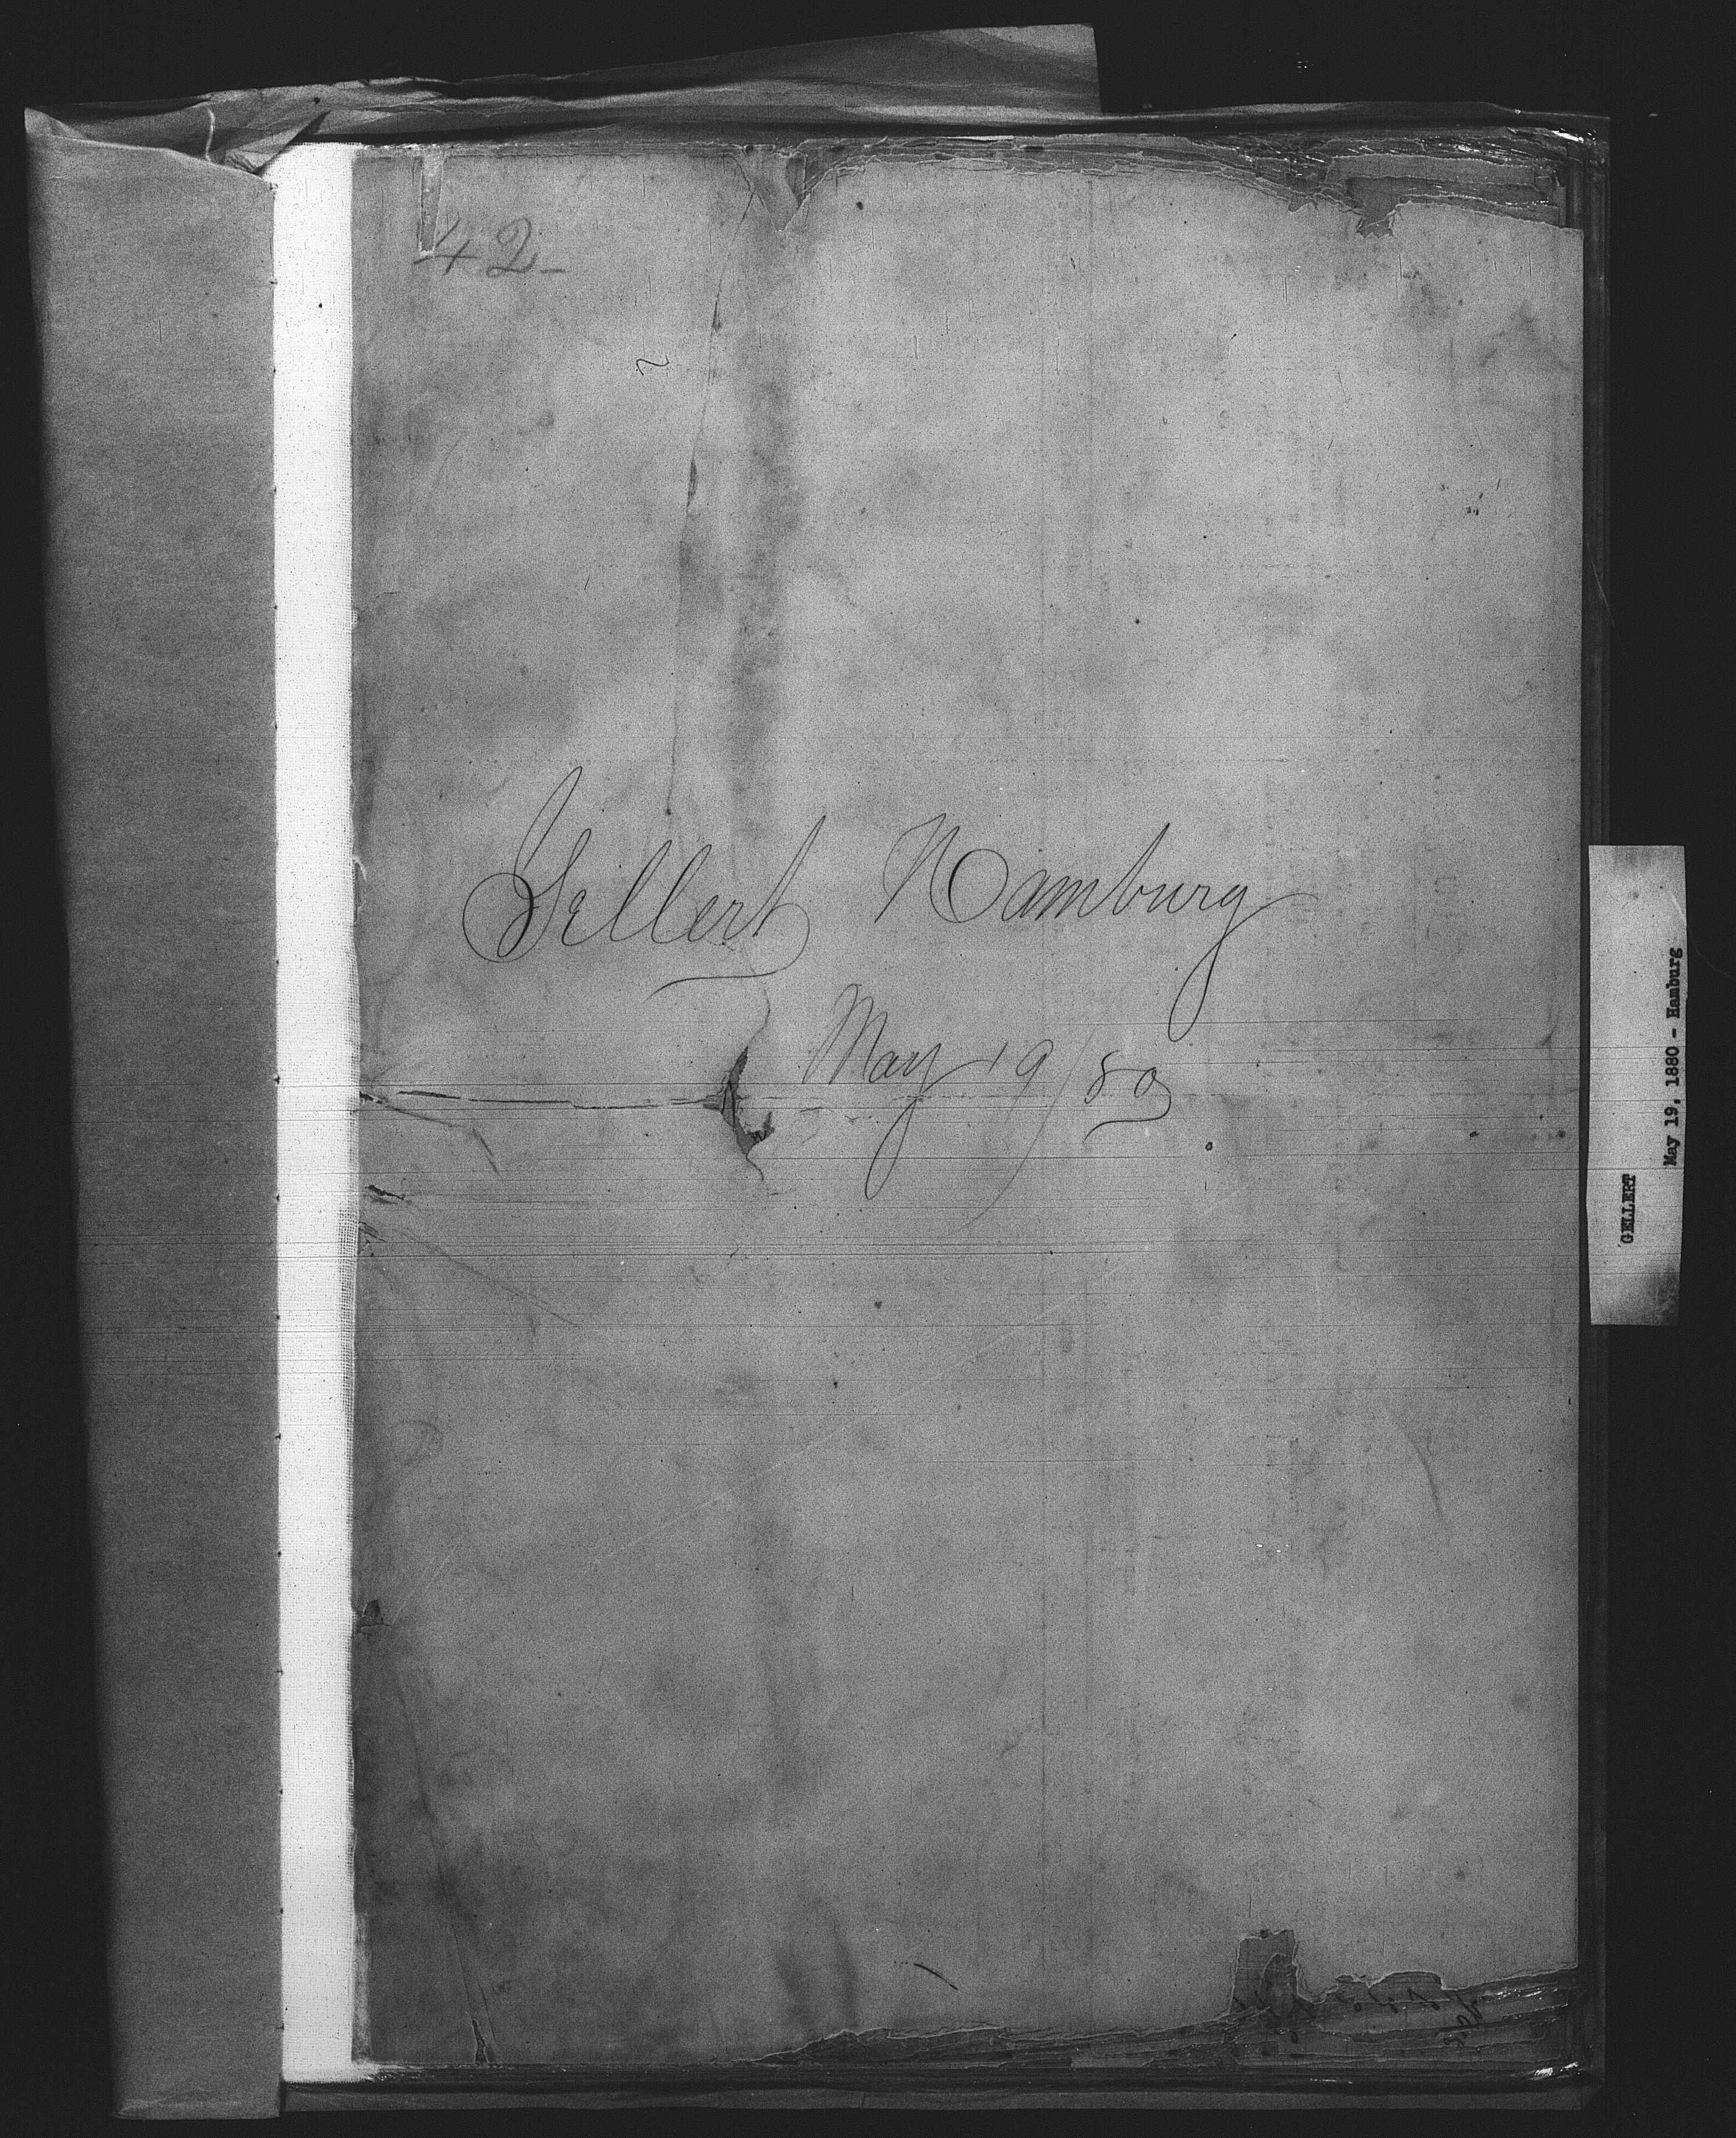 42
Gellert Hamburg
May 19/80
GELLERT
May 19, 1880 - Hamburg